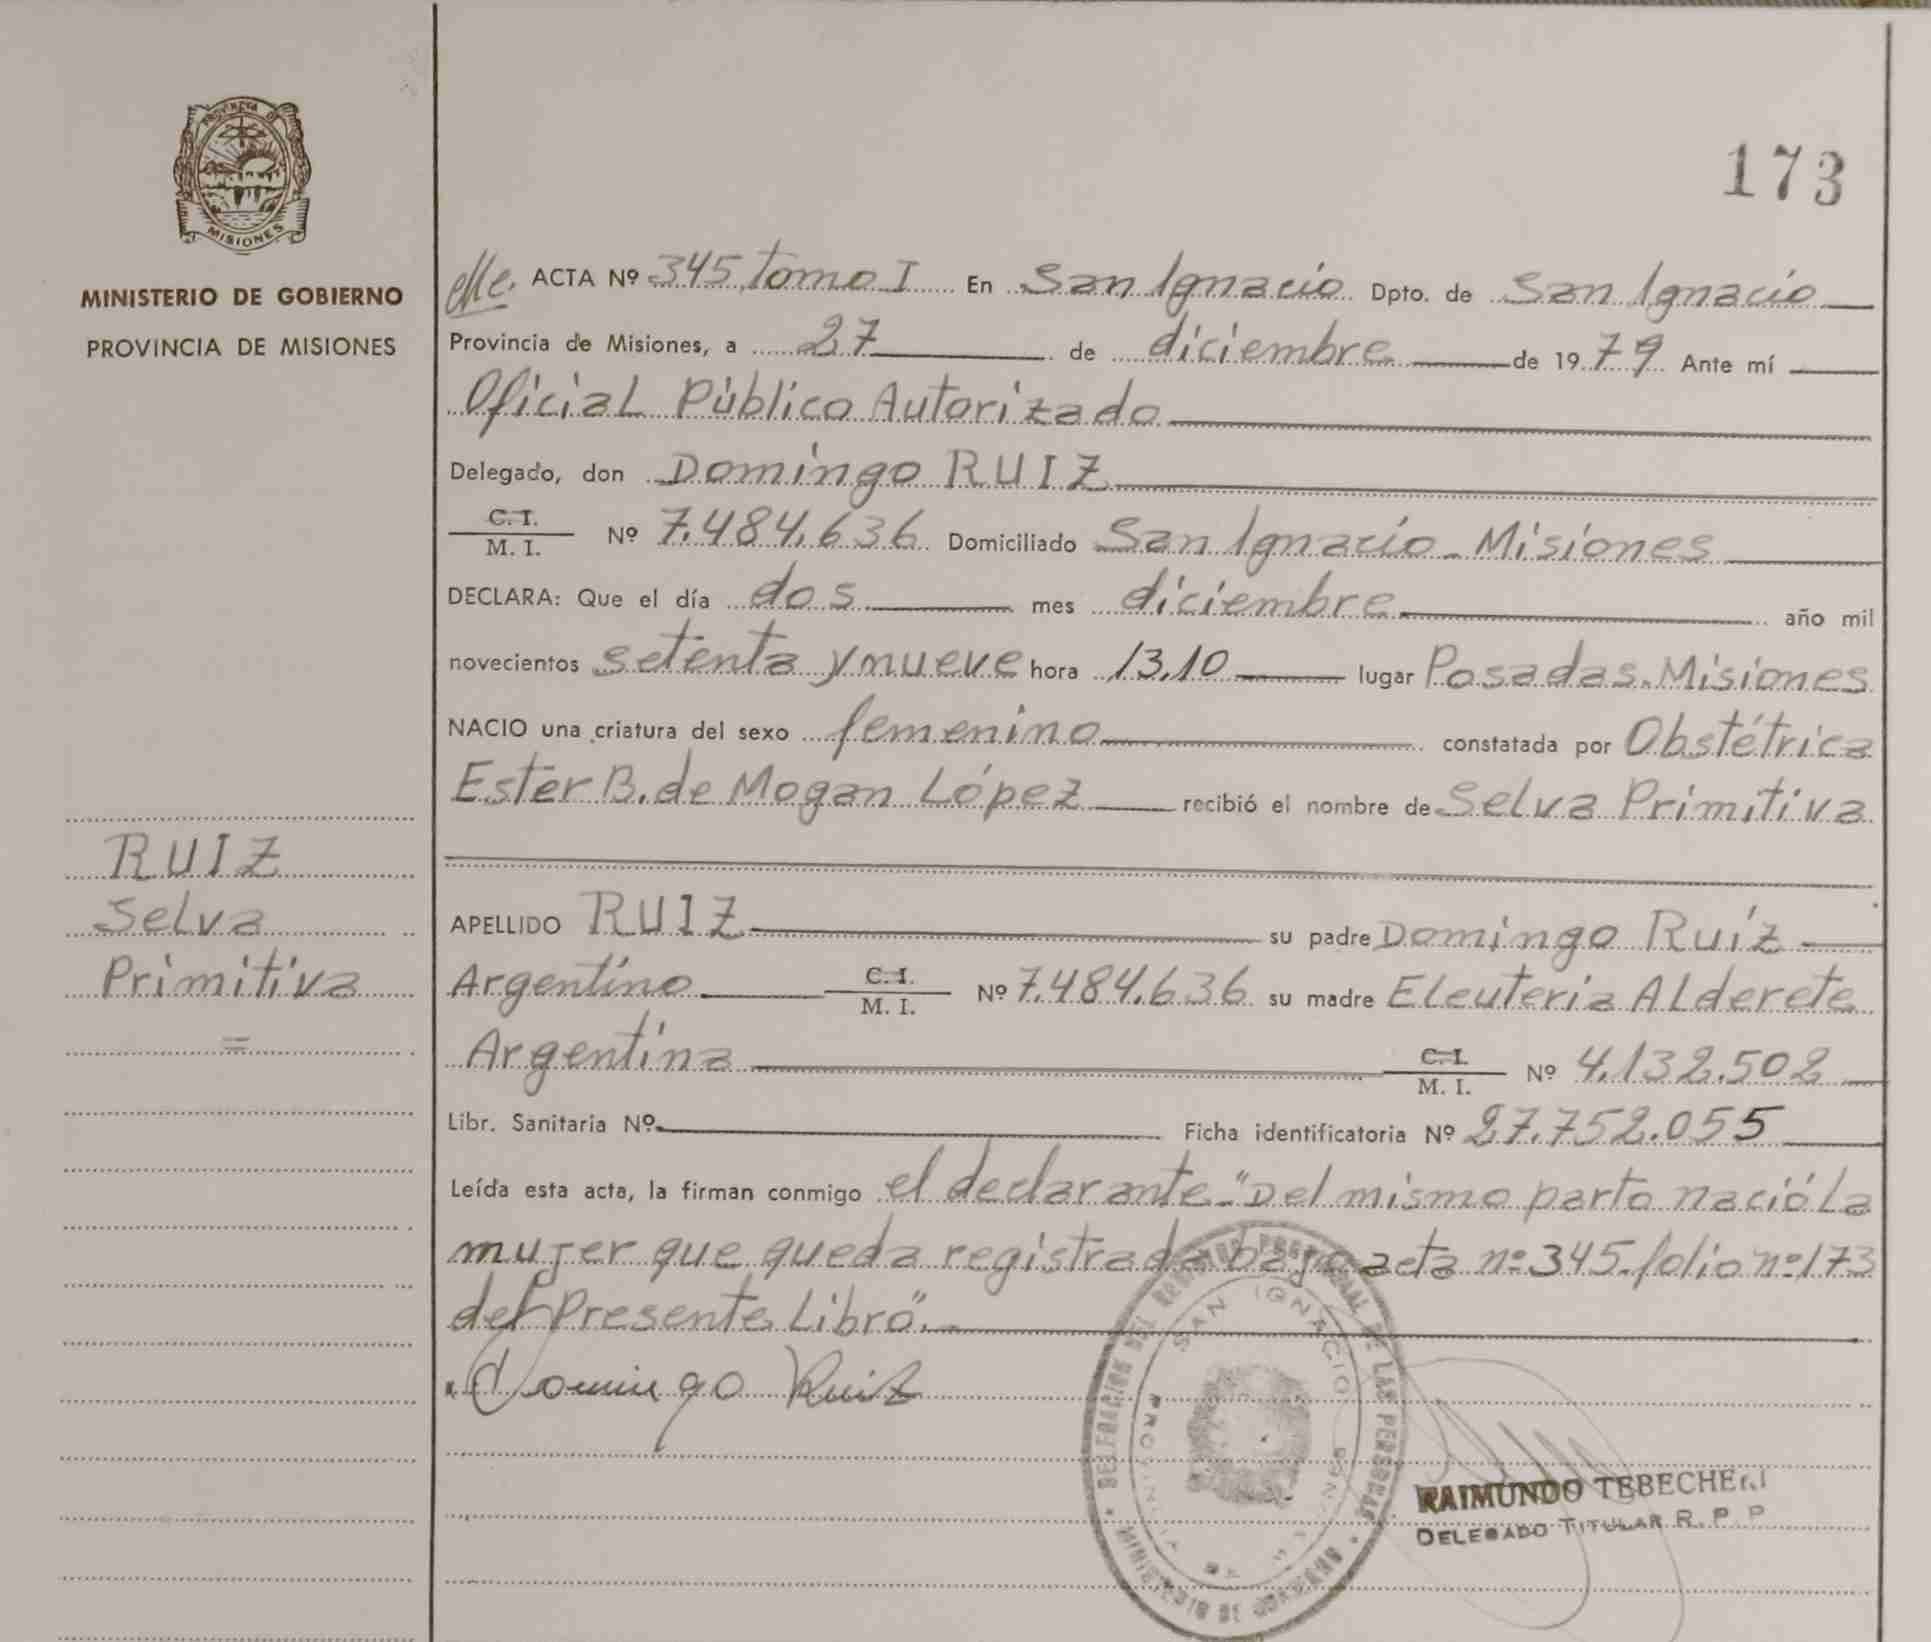 PROVINCIA DE
MISIONES
MINISTERIO DE GOBIERNO
PROVINCIA DE MISIONES
RUIZ
Selva
Primitiva
=
173
ACTA Nº 345 tomo I En San Ignacio Dpto. de San Ignacio
Provincia de Misiones, a 27 de diciembre de 1979 Ante mí
Oficial Público Autorizado
Delegado, don Domingo RUIZ
C. I.
M. I. Nº 7.484.636 Domiciliado San Ignacio - Misiones
DECLARA: Que el día dos mes diciembre año mil
novecientos setenta y nueve hora 13,10 lugar Posadas. Misiones
NACIO una criatura del sexo femenino constatada por Obstétrica
Ester B. de Mogan López recibió el nombre de Selva Primitiva
APELLIDO RUIZ su padre Domingo Ruíz
Argentino C. I. M. I. Nº 7.484.636 su madre Eleuteria Alderete
Argentina C. I. M. I. Nº 4.132.502
Libr. Sanitaria Nº Ficha identificatoria Nº 27.752.055
Leída esta acta, la firman conmigo el declarante - "Del mismo parto nació la
mujer que queda registrada bajo acta nº 345. folio nº 173
del Presente Libro".
Domingo Ruiz
DELEGACION DEL REGISTRO PROVINCIAL DE LAS PERSONAS
SAN IGNACIO
PROVINCIA
MINISTERIO DE GOBIERNO
RAIMUNDO TEBECHERI
DELEGADO TITULAR R. P. P